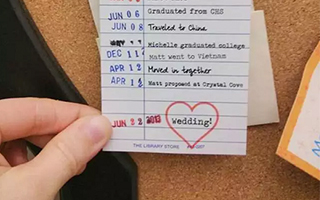 JUN 06 Graduated from CHS
JUN 08 Traveled to China
Michelle graduated college
DEC 11 Matt went to Vietnam
APR 12 Moved in together
APR Matt proposed at Crystal Cove
JUN 22 2013 Wedding!
THE LIBRARY STORE